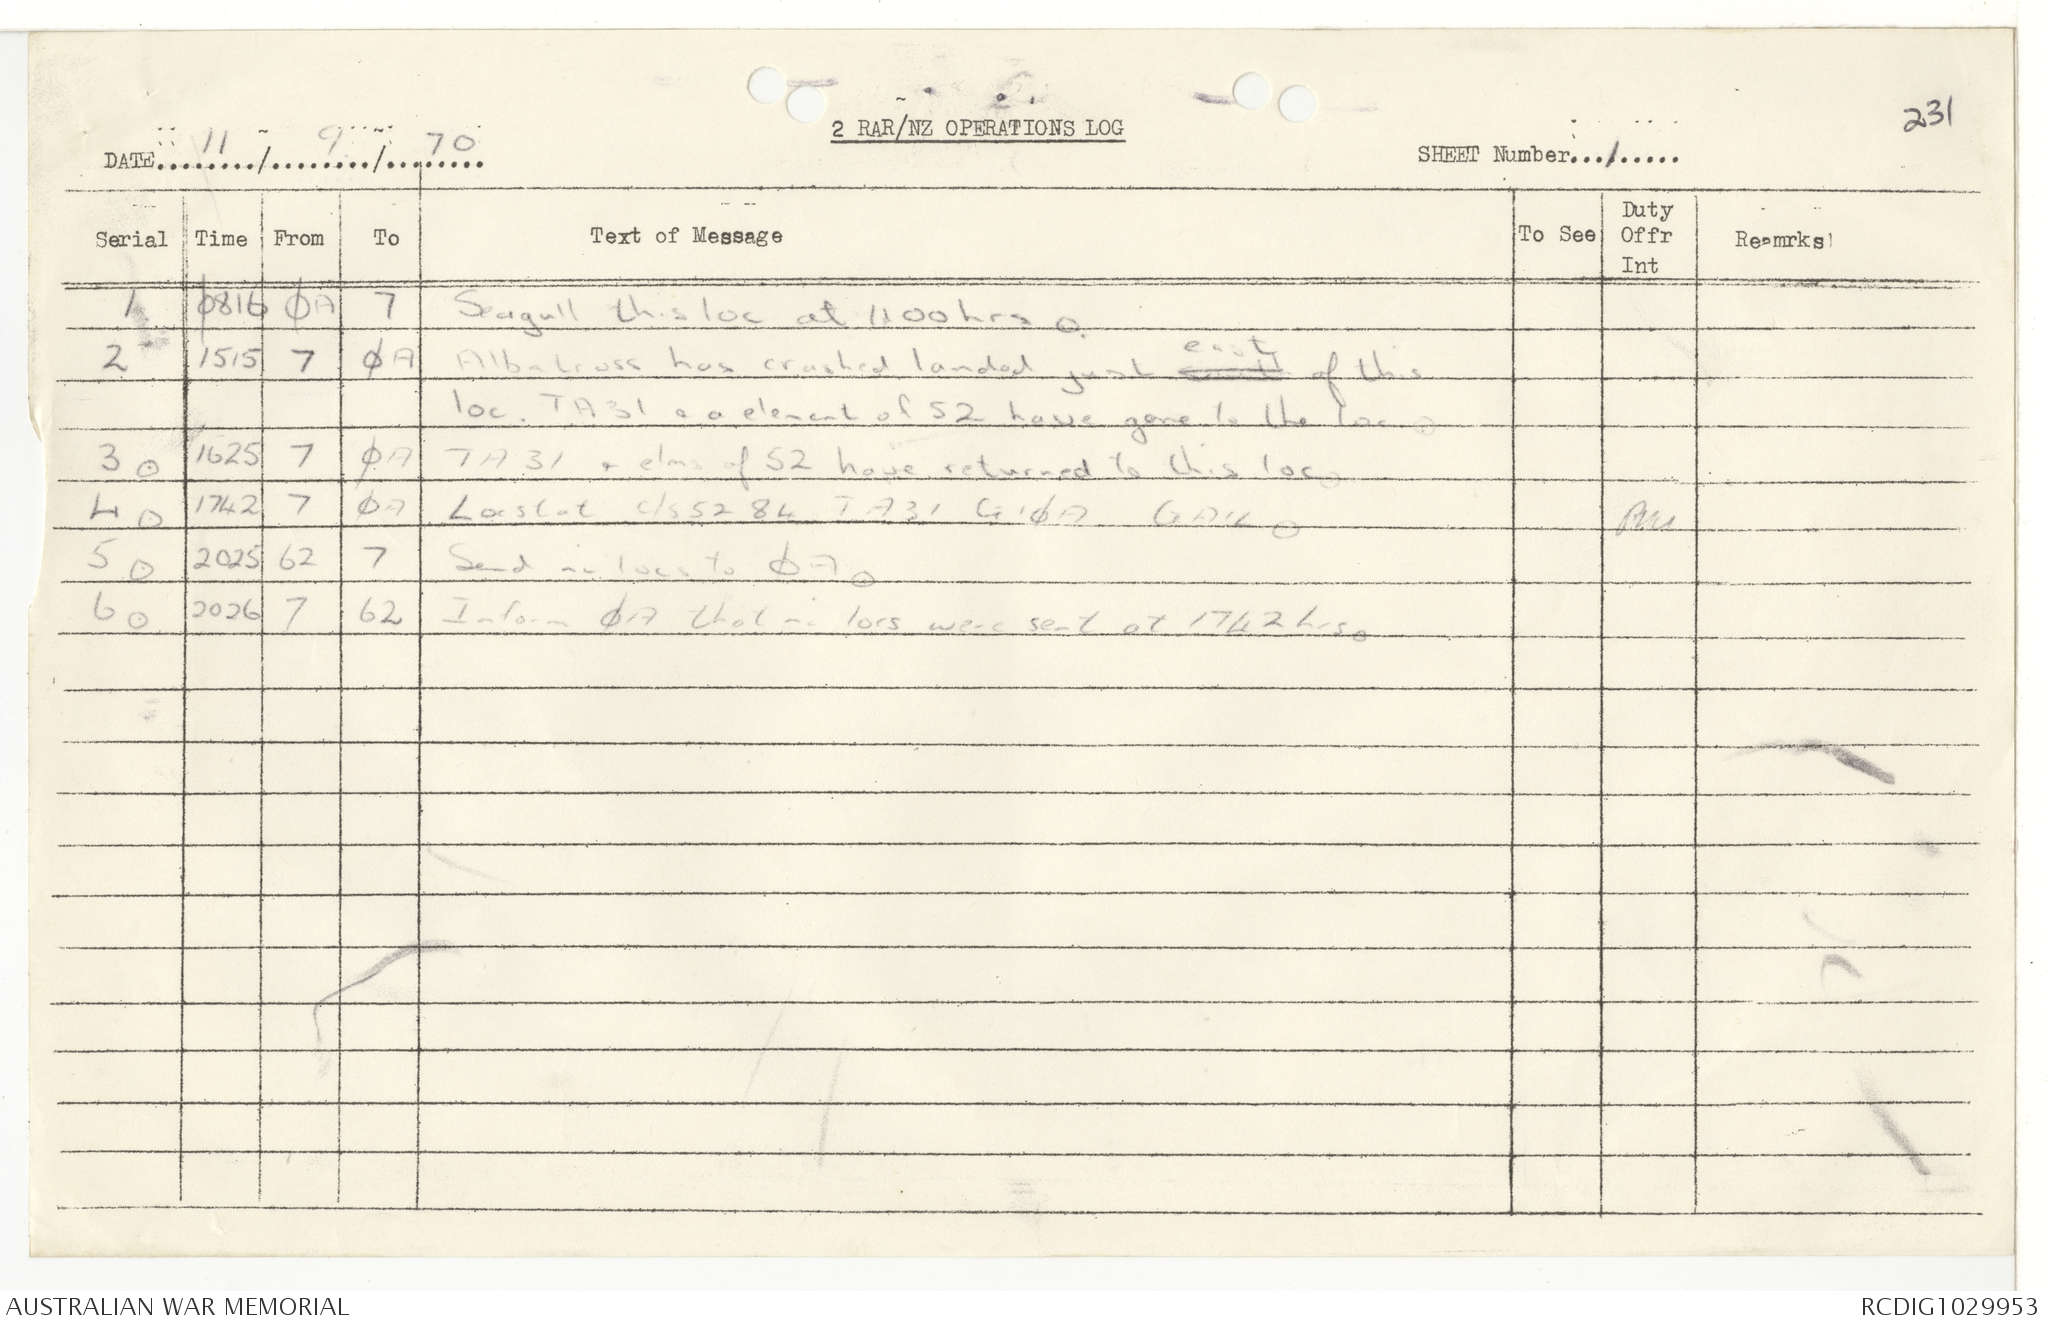 231
2 RAR/NZ OPERATIONS LOG
DATE 11 / 9 / 70
SHEET Number...1.....
Serial Time From To Text of Message To See Duty Offr Int Reamrks
1 φ816 φA 7 Seagull this loc at 1100hrs
2 1515 7 φA Albatross has crashed landed just east of this
loc. TA31 a element of 52 have gone to the loc
3 1625 7 φA TA31 + elms of 52 have returned to this loc
4 1742 7 φA Locstat c/s 52 84 TA31 G1φA
5 2025 62 7 Send ni locs to φA
6 2026 7 62 Inform φA that ni locs were sent at 1742hrs
AUSTRALIAN WAR MEMORIAL
RCDIG1029953